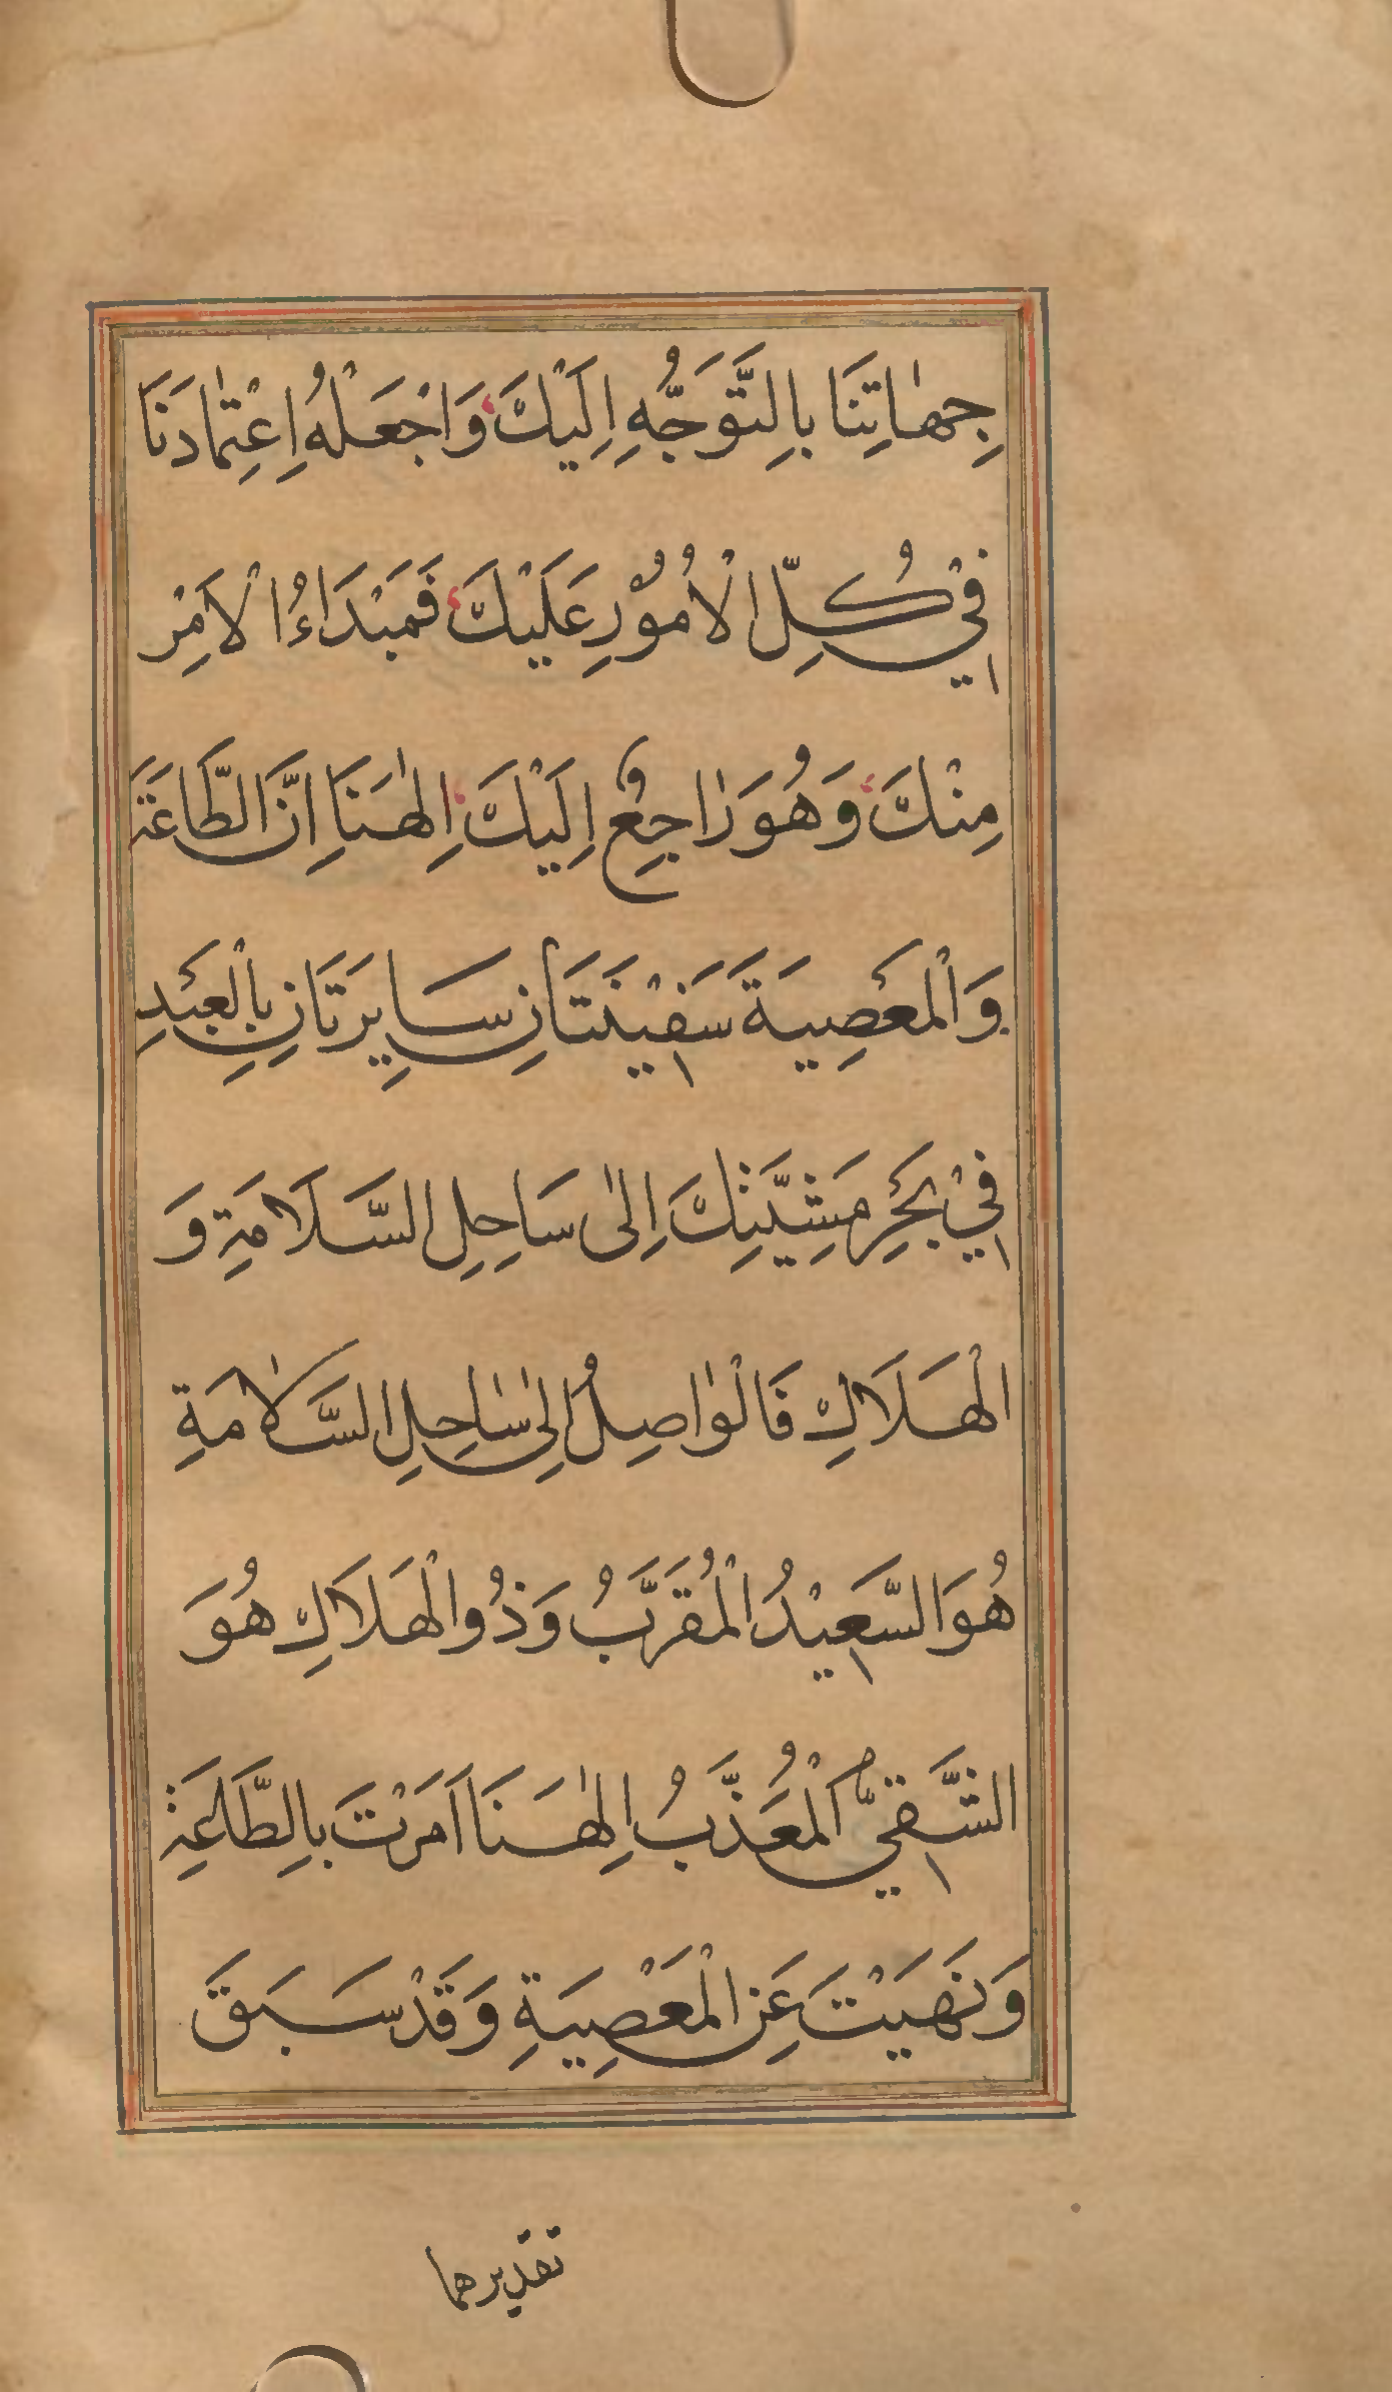 جِهٰاتِنَا بِالتَّوَجُّهِ اِلَيْكَ وَاجْعَلْهُ اِعْتِمٰادَنَا
فِيْ كُلِّ الْاُمُوْرِ عَلَيْكَ فَمَبْدَاءُ الْاَمْرِ
مِنْكَ وَهُوَ رٰاجِعٌ اِلَيْكَ اِلٰهَنَا اِنَّ الطَّاعَةَ
وَالْمَعْصِيَةَ سَفِيْنَتَانِ سَايِرَتَانِ بِالْعَبْدِ
فِيْ بَحْرِ مَشِيَّتِكَ اِلٰى سَاحِلِ السَّلَامَةِ وَ
الْهَلَاكِ فَالْوٰاصِلُ اِلىٰ سٰاحِلِ السَّلٰامَةِ
هُوَ السَّعِيْدُ الْمُقَرَّبُ وَذُو الْهَلَاكِ هُوَ
الشَّقِيُّ الْمُعَذَّبُ اِلٰهَنَا اَمَرْتَ بِالطَّاعَةِ
وَنَهَيْتَ عَنِ الْمَعْصِيَةِ وَقَدْ سَبَقَ
تقديرهما